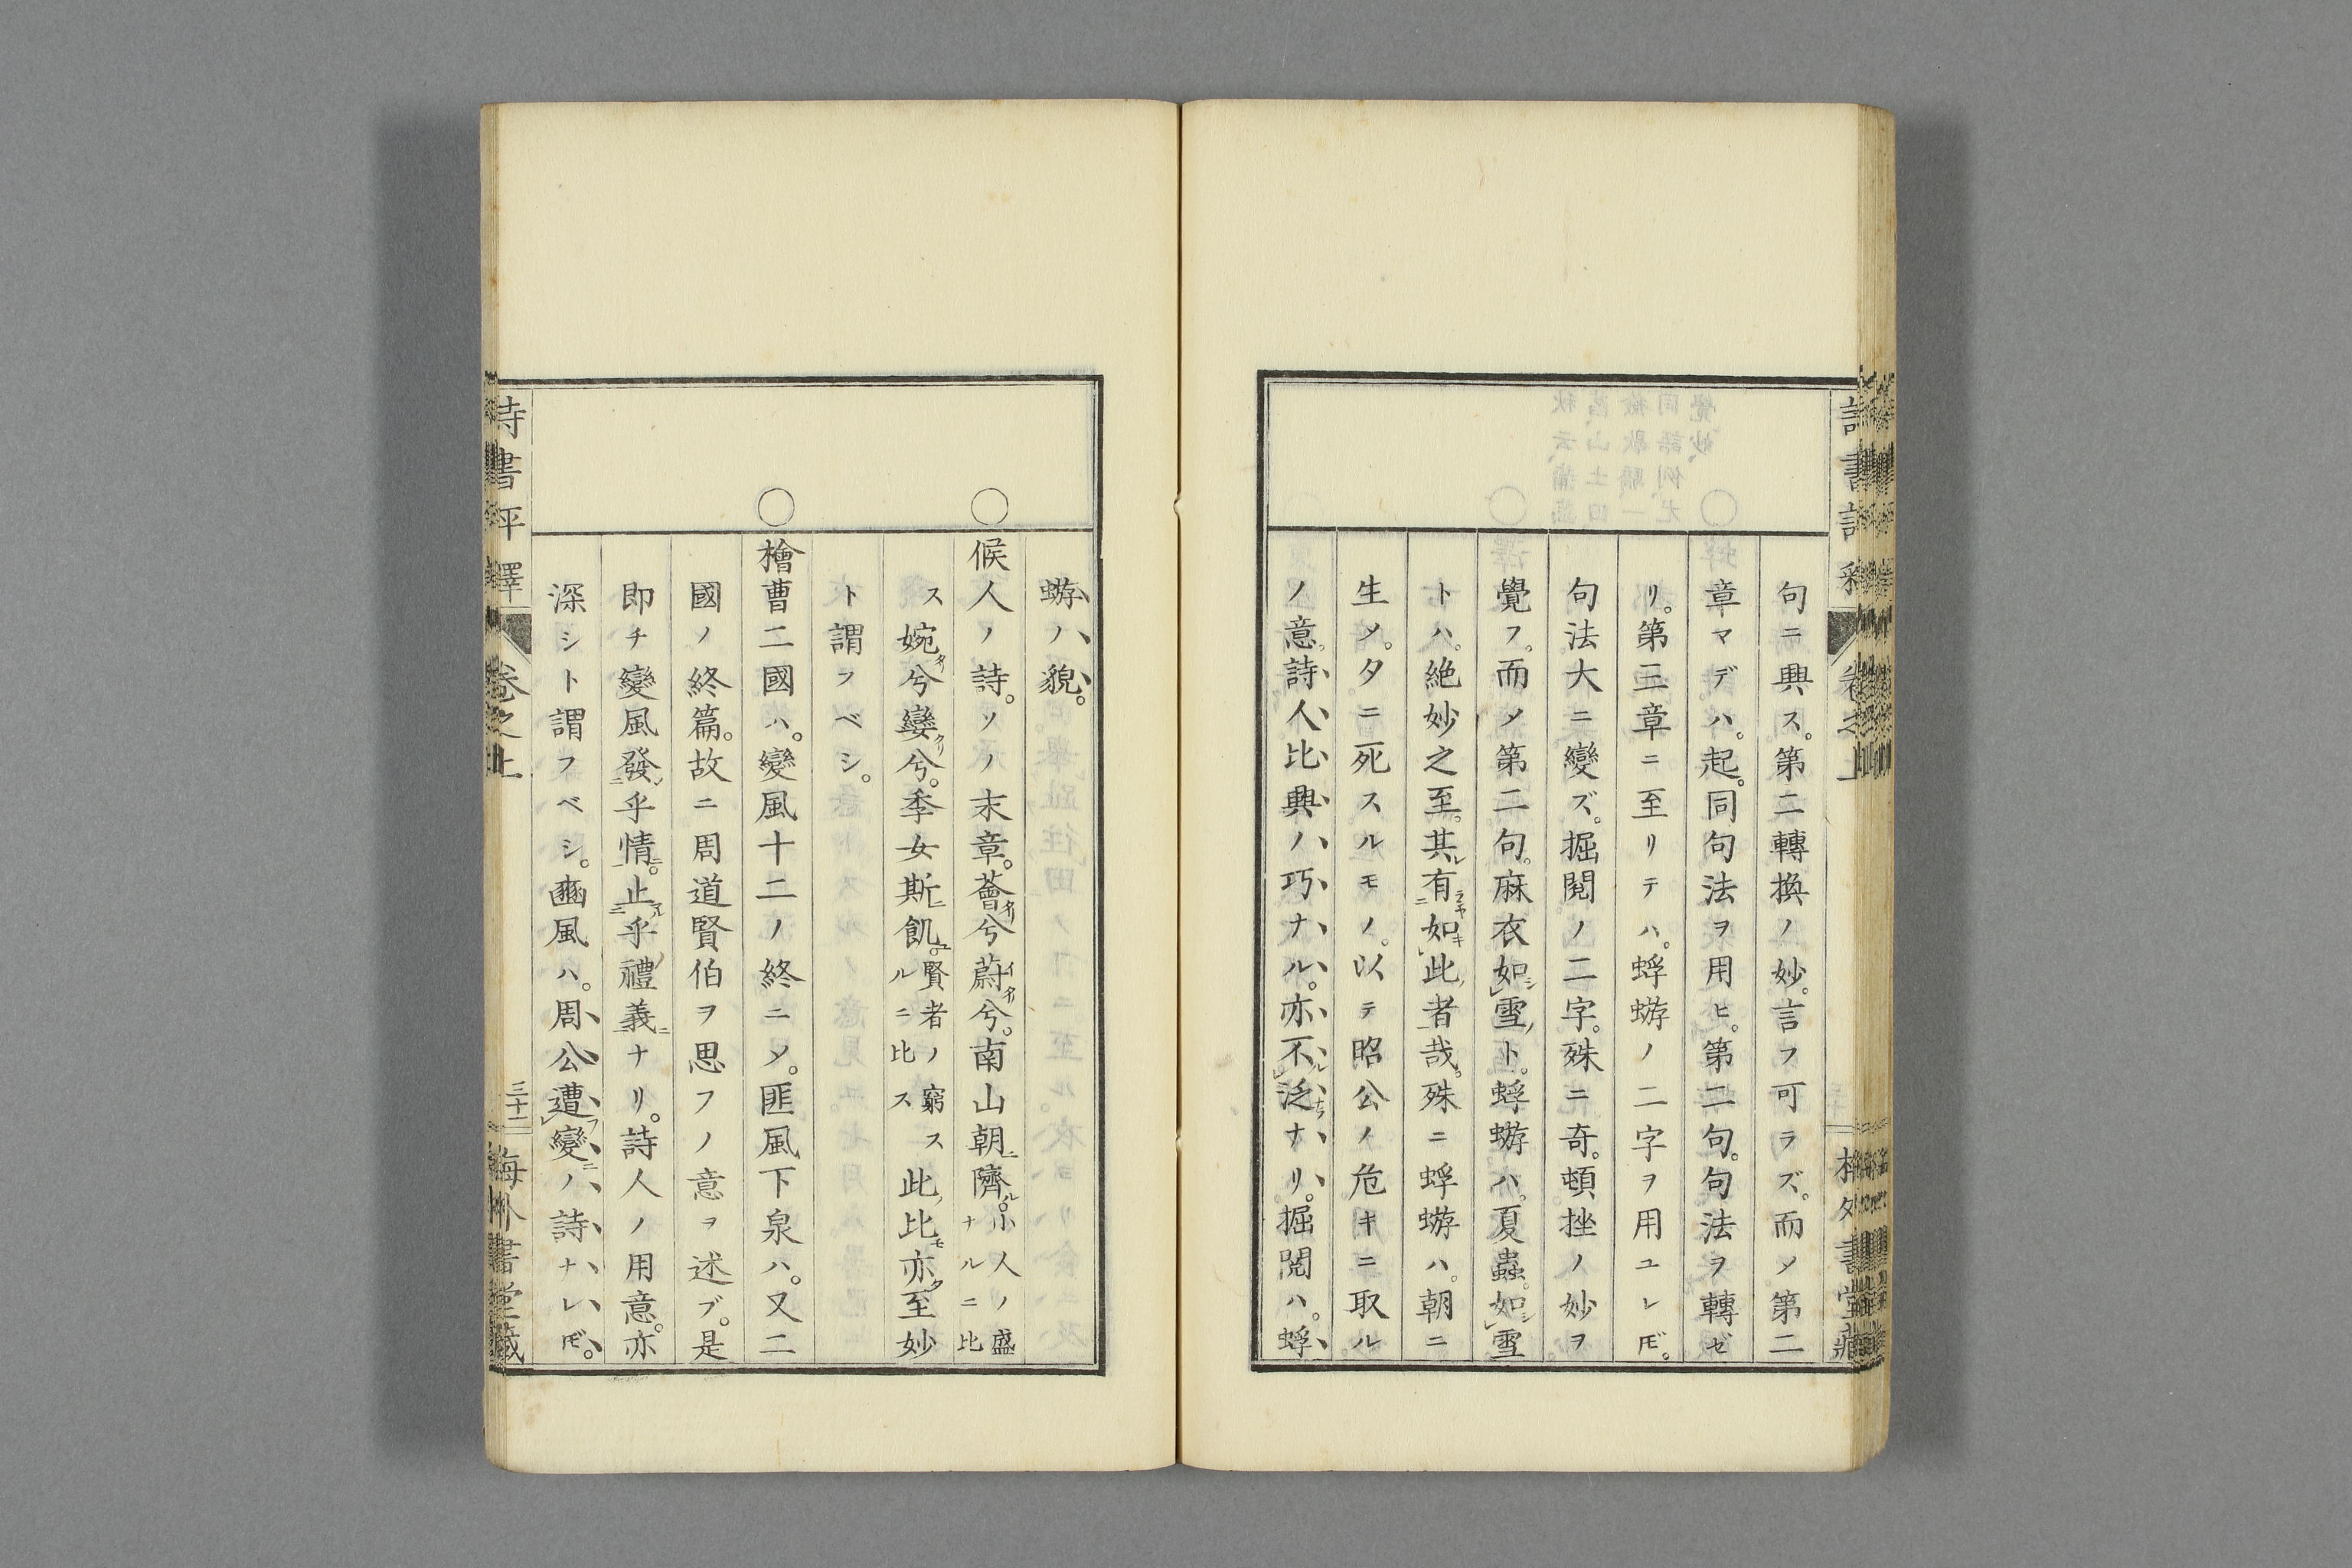 句ニ興ス。第二轉換ノ妙。言フ可ラズ。而ノ第二
章マデハ。起。同句法ヲ用ヒ。第二句。句法ヲ轉ゼ
リ。第三章ニ至リテハ。蜉蝣ノ二字ヲ用ユレ𪜈。
句法大ニ變ズ。掘閱ノ二字。殊ニ奇。頓挫ノ妙ヲ
覺フ。而ノ第二句。麻衣如シ雪ノト。蜉蝣ハ。夏蟲。如シ雪
トハ。絶妙之至。其レ有ラヤ如キ此ノ者哉。殊ニ蜉蝣ハ。朝ニ
生メ。夕ニ死スルモノ。以テ昭公ノ危キニ取ル
ノ意。詩人比興ノ巧ナル。亦不ル泛ナラナリ。掘閱ハ。蜉
蝣ノ貌。
候人ノ詩。ソノ末章。薈タリ兮蔚イタリ兮。南山朝ニ隮ル。小人ノ盛ナルニ比
ス婉タリ兮孌タリ兮。季女斯ニ飢ユ。賢者ノ窮スルニ比ス此ノ比モ亦タ至妙
ト謂フベシ。
檜曹二國ハ。變風十二ノ終ニソ。匪風下泉ハ。又二
國ノ終篇。故ニ周道賢伯ヲ思フノ意ヲ述ブ。是
即チ變風發乎情ニ。止ル乎禮義ニナリ。詩人ノ用意。亦
深シト謂フベシ。豳風ハ。周公遭フ變ニノ詩ナレ𪜈。
詩書評釋
卷之上
三十二
梅外書堂藏